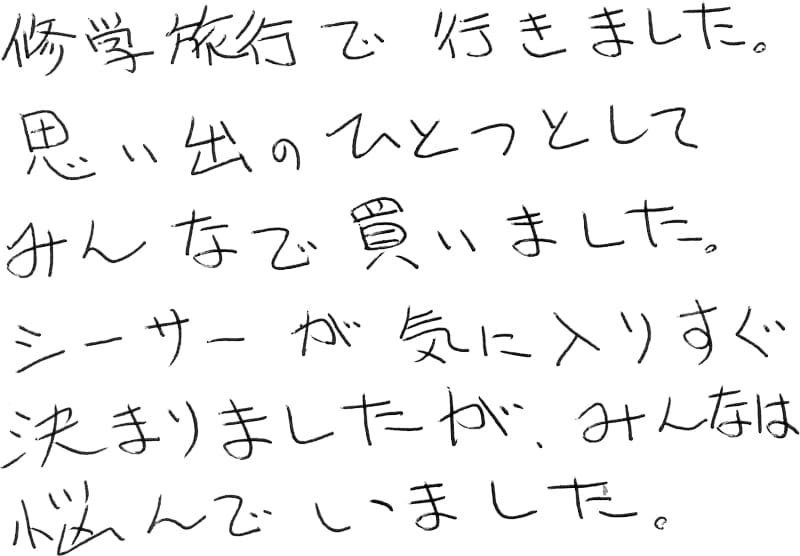 修学旅行で行きました。
思い出のひとつとして
みんなで買いました。
シーサーが気に入りすぐ
決まりましたが、みんなは
悩んでいました。